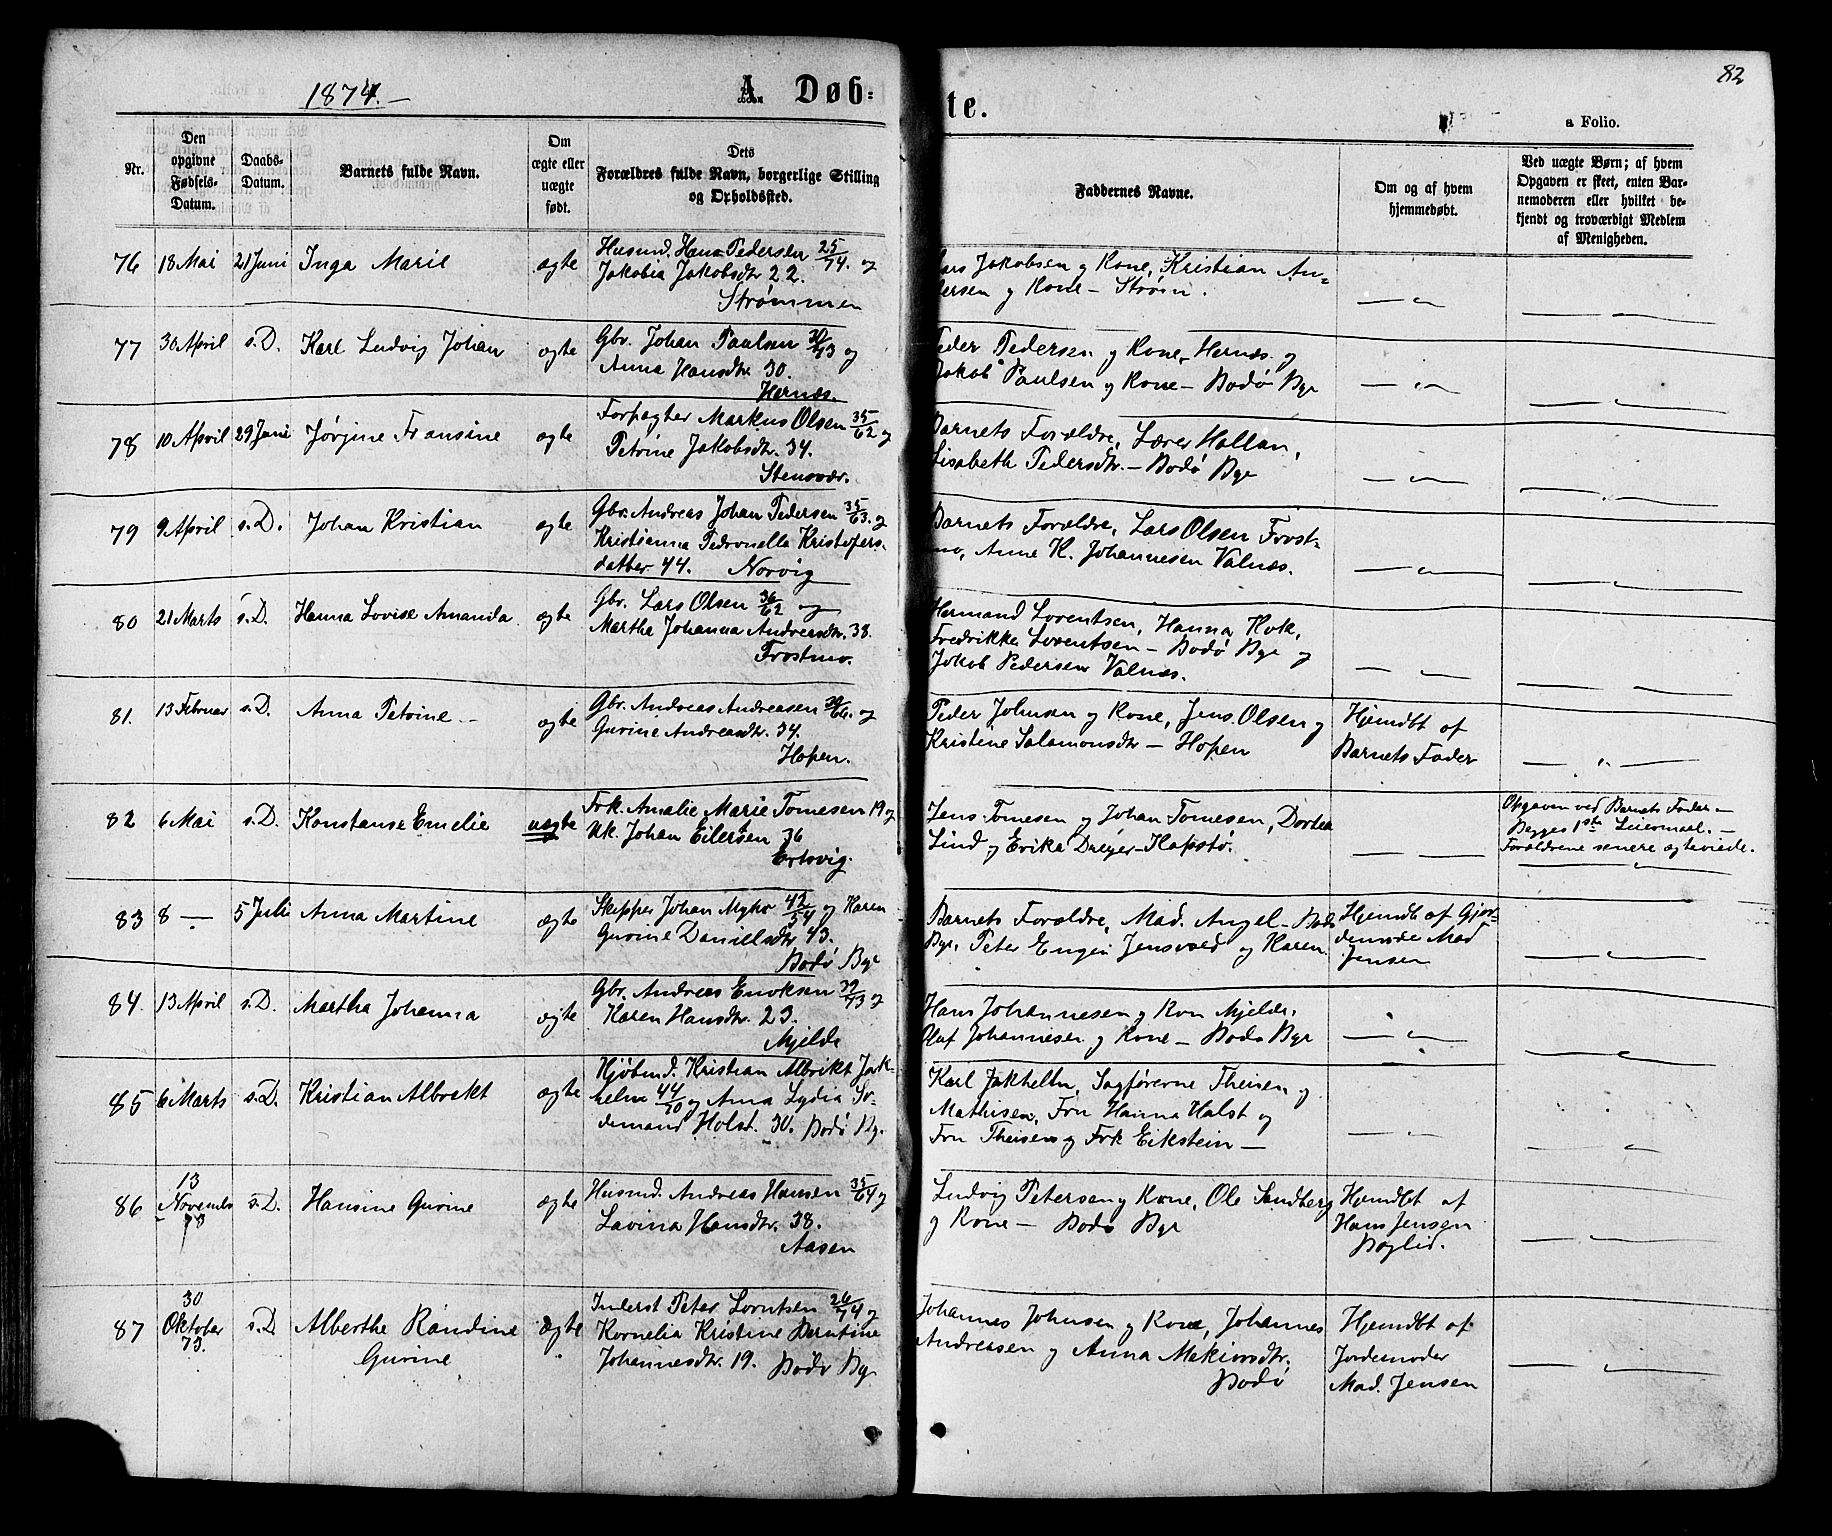 1874.
A. Døb=
te.
82
a Folio.
Nr.
Den
opgivne
Fødsels-
Datum.
Daabs-
Datum.
Barnets fulde Navn.
Om
ægte eller
uægte
født.
Dets
Forældres fulde Navn, borgerlige Stilling
og Opholdssted.
Faddernes Navne.
Om og af hvem
hjemmedøbt.
Ved uægte Børn; af hvem
Opgaven er skeet, enten Bar-
nemoderen eller hvilket be-
kjendt og troværdigt Medlem
af Menigheden.
76 18 Mai 21 Juni Inga Marie ægte
Husmd. Hans Pedersen 25/74. og
Jakobia Jakobsdtr 22.
Strømmen
Lars Jakobsen og Kone, Kristian An-
dersen og Kone – Strøm.
77 30 April s.D. Karl Ludvig Johan ægte
Gbr. Johan Paulsen /73 og
Anna Hansdtr. 30.
Hernæs.
Peder Pedersen og Kone, Hernæs. og
Jakob Paulsen og Kone – Bodø By
78 10 April 29 Juni Jørgine Fransine ægte
Forpagter Markus Olsen 35/62 og
Petrine Jakobsdtr. 34.
Stensvær.
Barnets Forældre, Lærer Hallan,
Lisabeth Pedersdtr. – Bodø By
79 9 April s.D. Johan Kristian ægte
Gbr. Andreas Johan Pedersen 35/63. og
Kristianna Pedronella Kristofers-
datter 44. Norvig
Barnets Forældre, Lars Olsen Frost-
mo, Anne K. Johannesen Valnæs.
80 21 Marts s.D. Hanna Lovise Amanda. ægte
Gbr. Lars Olsen 36/62 og
Martha Johanna Andreasdtr. 38.
Frostmo.
Hermand Lorentsen, Hanna Kok,
Fredrikke Lorentsen – Bodø By og
Jakob Pedersen Valnæs.
81. 13 Februar s.D. Anna Petrine – ægte
Gbr. Andreas Andreasen /66. og
Gurine Andreasdtr. 34.
Hopen.
Peder Johnsen og Kone, Jens Olsen og
Kristine Salamonsdtr – Hopen
Hjemdbt af
Barnets Fader
82 6 Mai s.D. Konstanse Emelie uægte
Frk. Amalie Marie Tomesen 19 og
Uk. Johan Eilersen 36
Ertsvig.
Jens Tomesen og Johan Tomesen, Dortea
Lind og Erika Dreyer – Hopstø.
Opgaven ved Barnets Fader –
Begges 1ste Leiermaal. –
Forældrene senere ægteviede.
83 8 — 5 Juli Anna Martine ægte
Skipper Johan Myhr 42/54 og Karen
Gurine Danielsdtr 43.
Bodø By
Barnets Forældre, Mad. Angel – Bodø
By, Peter Engen Jensved og Karen
Hjemdbt af Gjor-
demode Mad
Jensen
84. 13 April s.D. Martha Johanna ægte
Gbr. Andreas Enoksen /73 og
Karen Hansdtr. 23.
Mjelde
Hans Johannesen og Kon Mjelde.
Oluf Johannesen og Kone – Bodø By
85 6 Marts s.D. Kristian Albrekt ægte
Kjøbmd. Kristian Albrikt Jak-
helln 44/70 og Anna Lydia So-
demand Holst. 30. Bodø By.
Karl Jakhelln, Sagførerne Theisen og
Mathisen, Fru Hanna Holst og
Fru Theisen og Frk Eikstein –
86 13
November
73 s.D. Hansine Gurine ægte
Husmd. Andreas Hansen 35/64 og
Lavina Hansdtr. 38.
Aasen
Ludvig Petersen og Kone, Ole Sandberg
og Kone – Bodø By
Hjemdbt af
Hans Jensen
Böglid.
87 30
Oktober
73. s.D Alberthe Randine
Gurine ægte
Inderst Peter Lorntsen 26/74 og
Kornelia Kristine Berntine
Johannesdtr. 19. Bodø By
Johannes Johnsen og Kone, Johannes
Andreasen og Anna Mekiorsdtr.
Bodø
Hjemdbt af
Jordemoder
Mad. Jensen